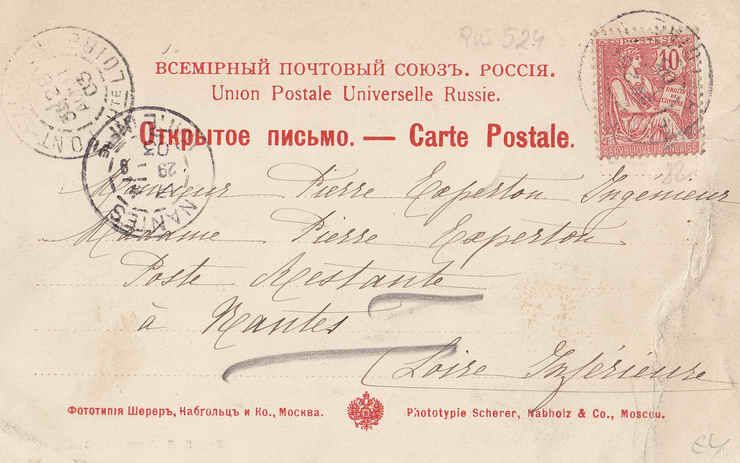 Rus 524
ВСЕМІРНЫЙ ПОЧТОВЫЙ СОЮЗЪ. РОССІЯ.
Union Postale Universelle Russie.
Открытое письмо. — Carte Postale.
10
REPUBLIQUE FRANÇAISE
NANTES
Monsieur Pierre Experton Ingenieur
Madame Pierre Experton
Poste Restante
à Nantes
(Loire Inférieure
Фототипія Шереръ, Набгольцъ и Ко., Москва.
Phototypie Scherer, Nabholz & Co., Moscou.